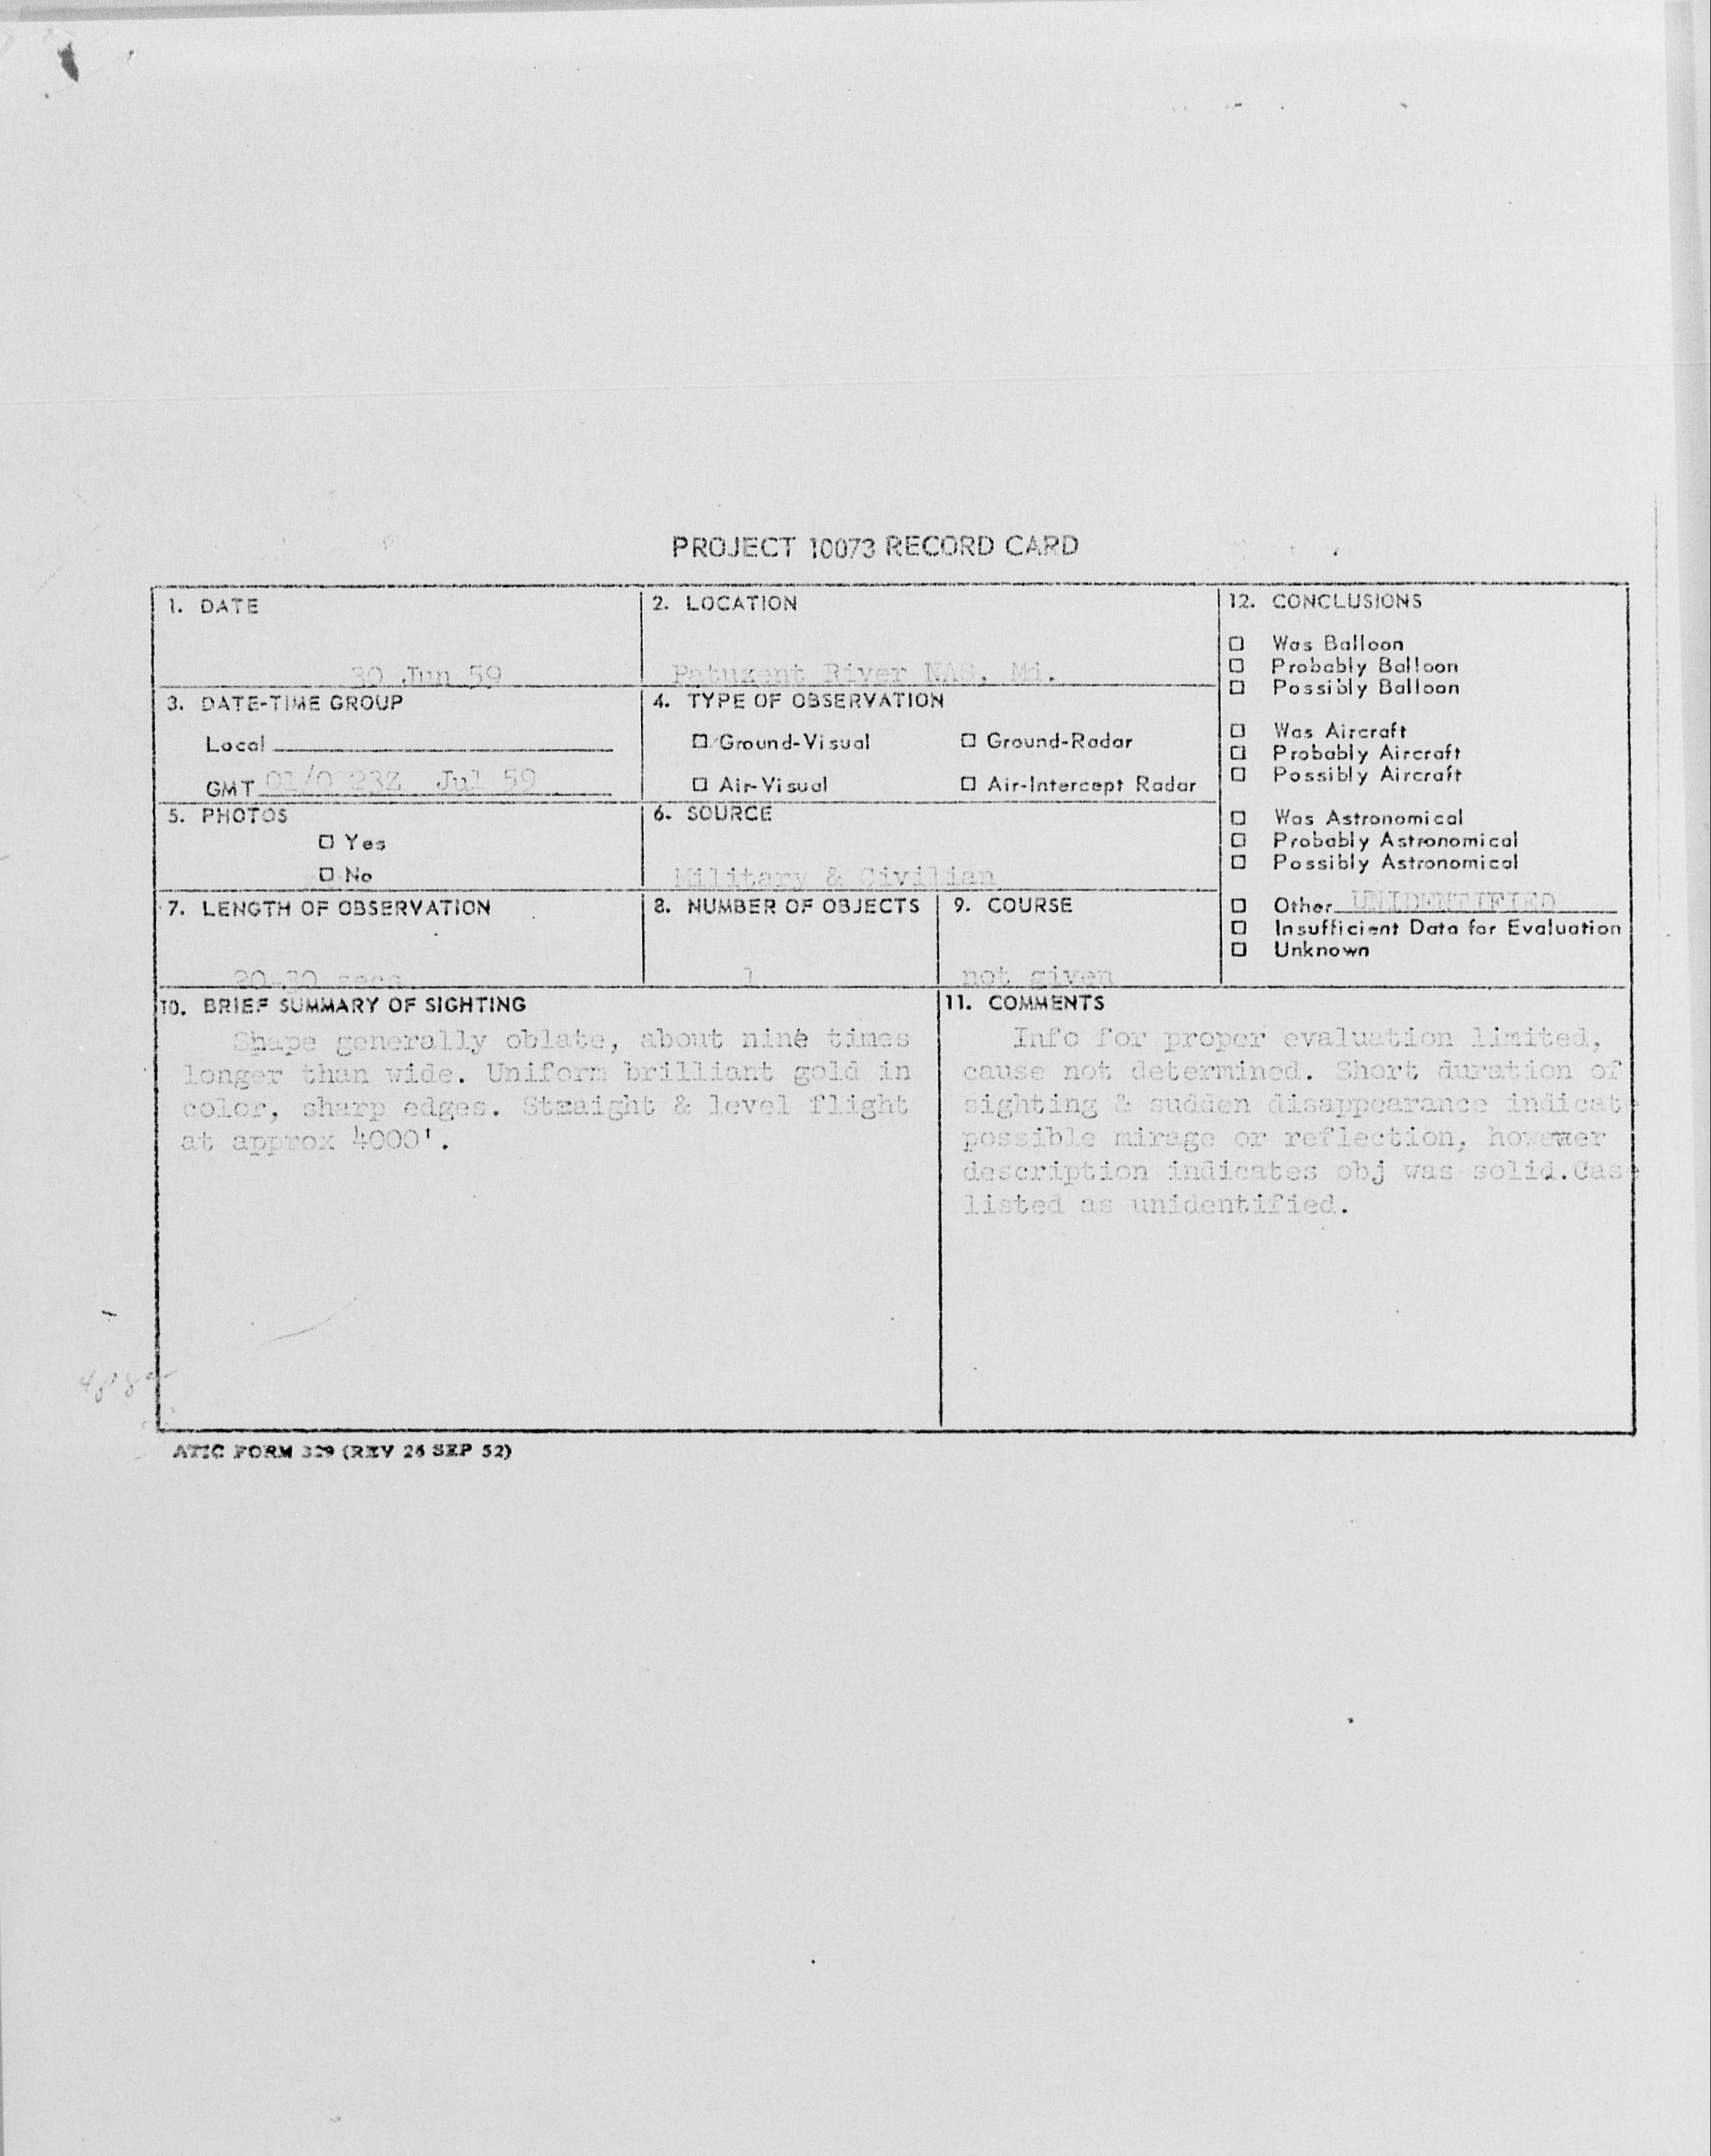 PROJECT 10073 RECORD CARD
1. DATE
30 Jun 59
2. LOCATION
Patuxent River NAS, Md.
3. DATE-TIME GROUP
Local
GMT 01/0 23Z Jul 59
4. TYPE OF OBSERVATION
Ground-Visual Ground-Radar
Air-Visual Air-Intercept Radar
5. PHOTOS
Yes
No
6. SOURCE
Military & Civilian
7. LENGTH OF OBSERVATION
20-30 secs
8. NUMBER OF OBJECTS
1
9. COURSE
not given
12. CONCLUSIONS
Was Balloon
Probably Balloon
Possibly Balloon
Was Aircraft
Probably Aircraft
Possibly Aircraft
Was Astronomical
Probably Astronomical
Possibly Astronomical
Other UNIDENTIFIED
Insufficient Data for Evaluation
Unknown
10. BRIEF SUMMARY OF SIGHTING
Shape generally oblate, about nine times
longer than wide. Uniform brilliant gold in
color, sharp edges. Straight & level flight
at approx 4000'.
11. COMMENTS
Info for proper evaluation limited,
cause not determined. Short duration of
sighting & sudden disappearance indicate
possible mirage or reflection, however
description indicates obj was solid.Case
listed as unidentified.
ATIC FORM 329 (REV 26 SEP 52)